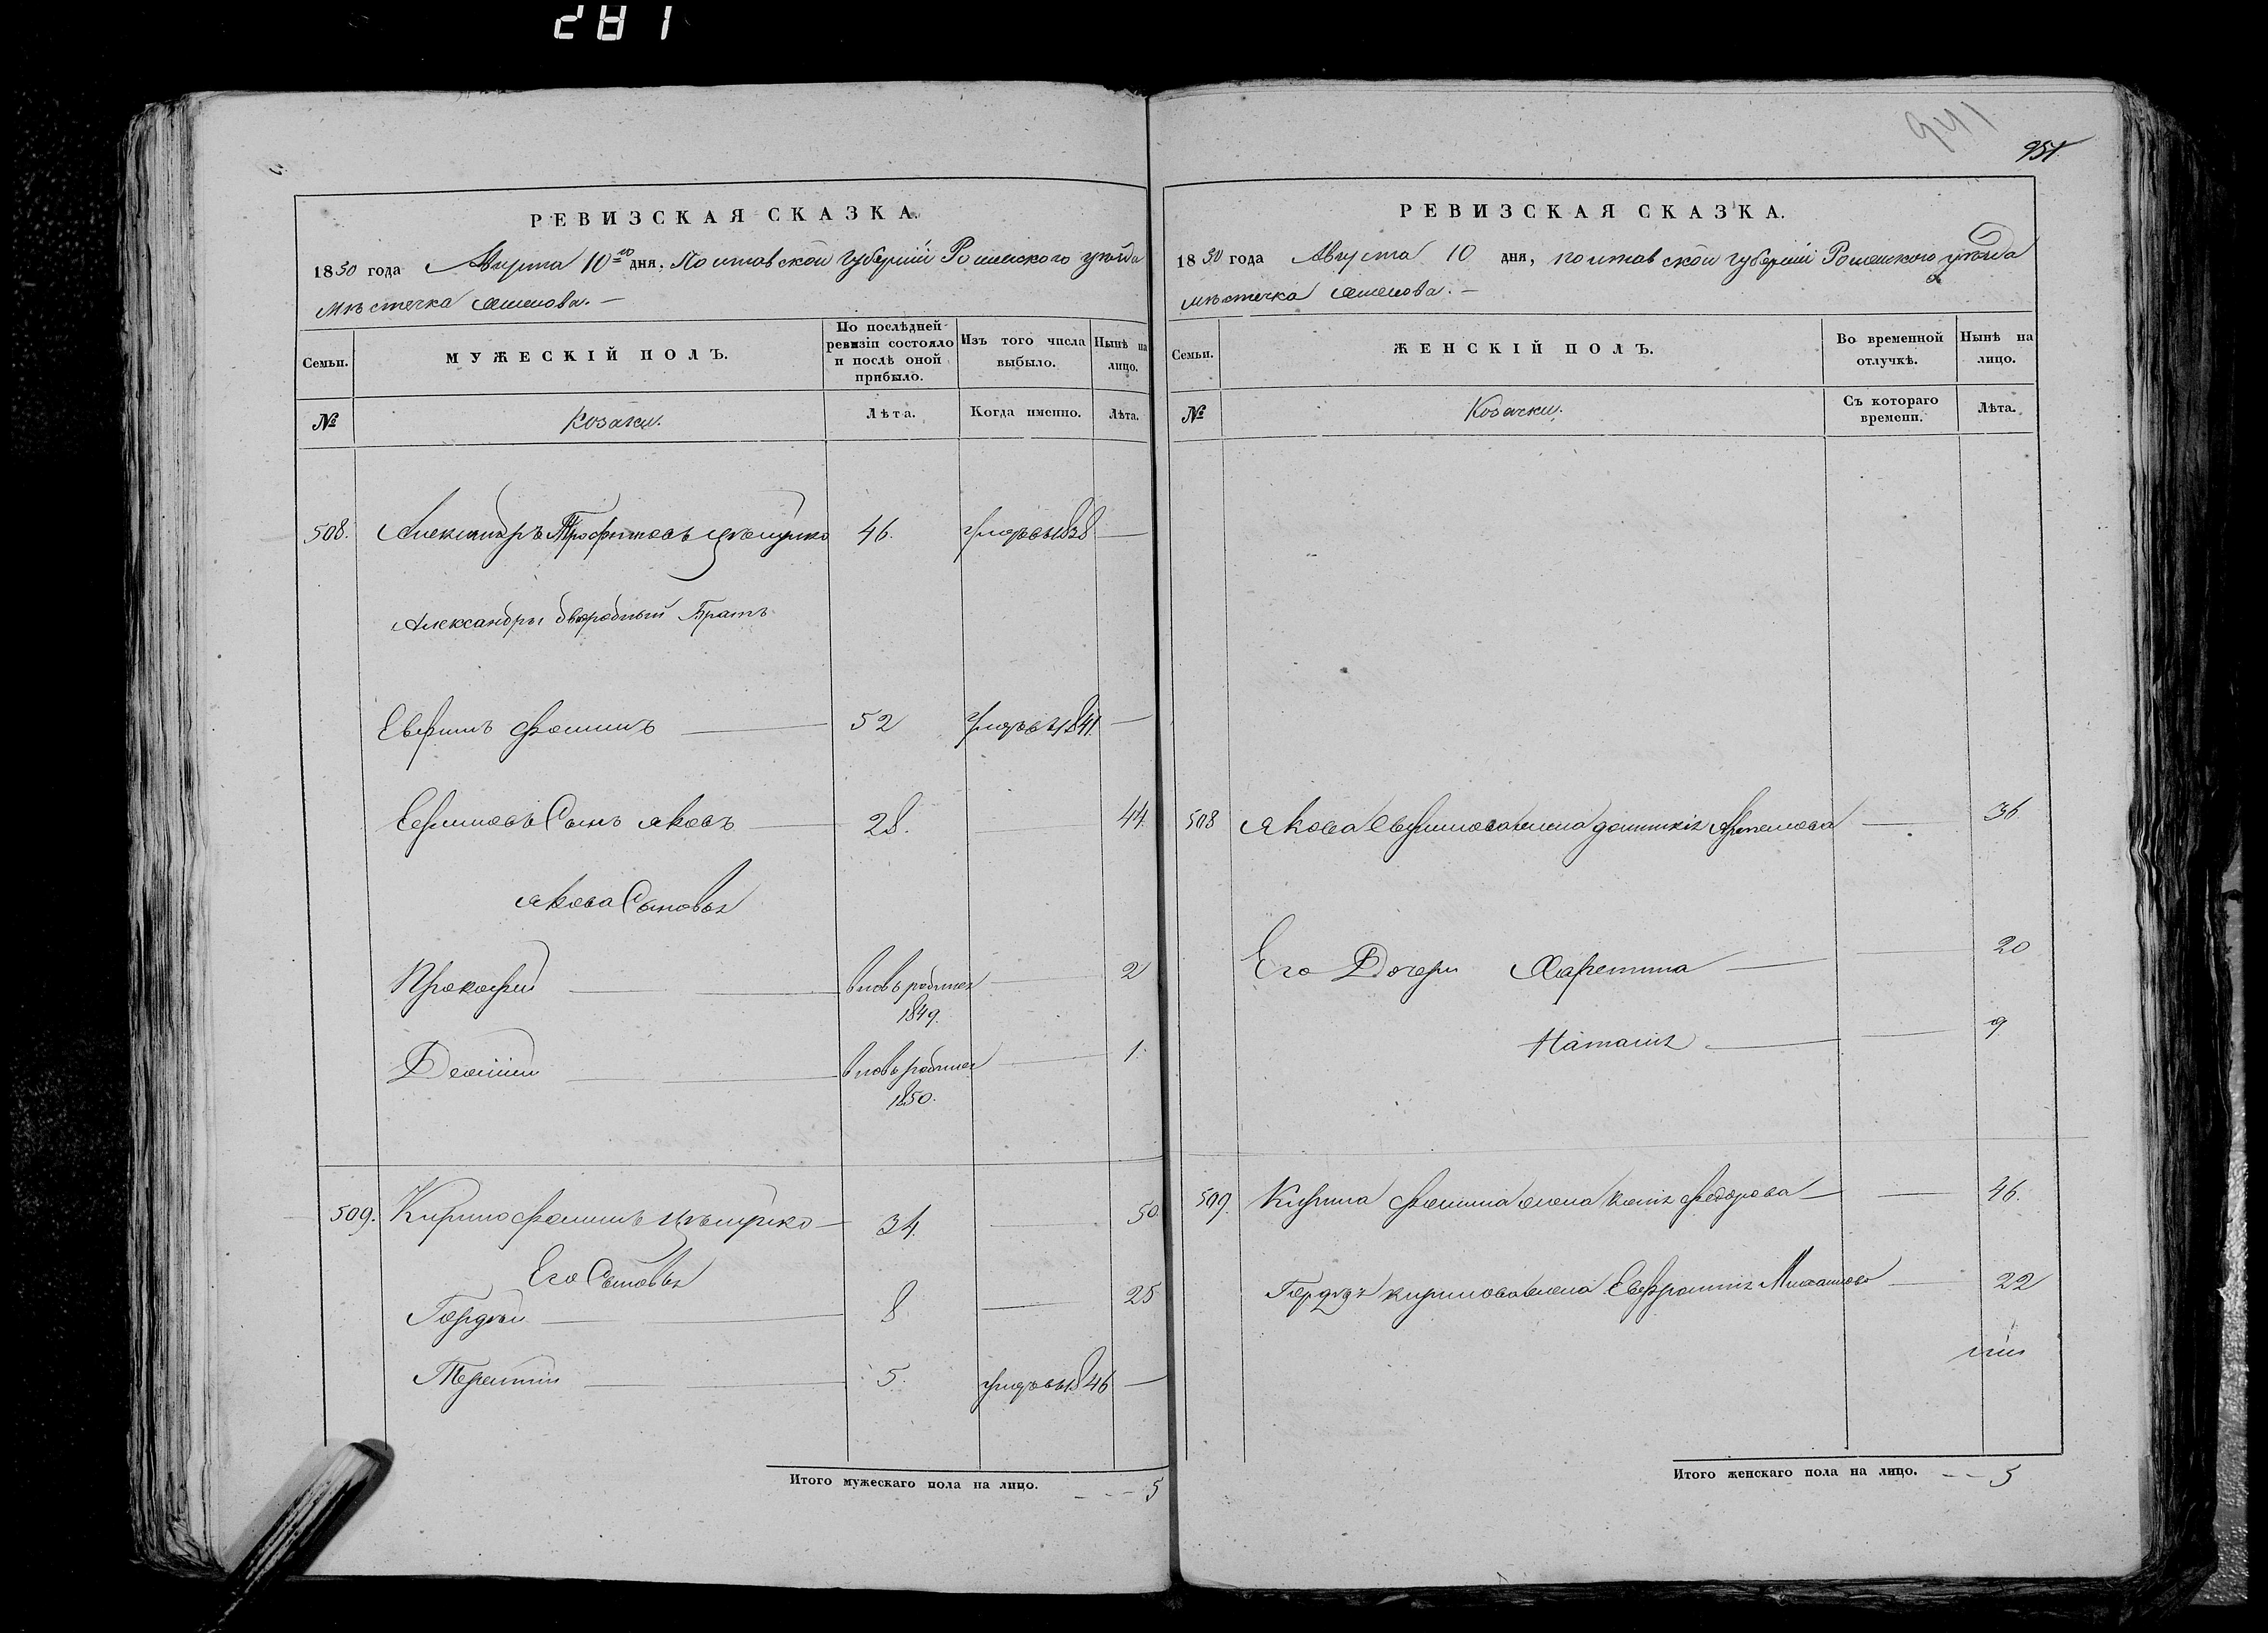 281
941
951
РЕВИЗСКАЯ СКАЗКА.
1850 года Августа 10го дня, Полтавской губернiи Роменского уѣзда
мѣстечка Смелова. —
Семьи.
МУЖЕСКІЙ ПОЛЪ.
По послѣдней ревизіи состояло и послѣ оной прибыло.
Изъ того числа выбыло.
Нынѣ на лицо.
№
Козаки.
Лѣта.
Когда именно.
Лѣта.
508. Александръ Трофимовъ 46. 1838 —
Александры двородный Братъ
Евфимъ Фоминъ — 52 1841. —
Евфимовъ Сынъ Яковъ — 28. 44.
Якова Сыновья
Прокофий — вновь родился 1849. — 2
— вновь родился 1850. — 1.
509. Кирило Фоминъ — 34. — 50.
Его Сыновья
Гордѣй — 8 — 25
Терентий — 5. 1846 —
Итого мужескаго пола на лицо. - - - 5
РЕВИЗСКАЯ СКАЗКА.
1850 года Августа 10 дня, Полтавской губернiи Роменского уѣзда
мѣстечка Смелова. —
Семьи.
ЖЕНСКІЙ ПОЛЪ.
Во временной отлучкѣ.
Нынѣ на лицо.
№
Козачки.
Съ котораго времени.
Лѣта.
508 Якова Евфимова жена Домникія Артемова — 36.
Его Дочери Харетина — — 20
Наталия — — 9
509. Кирила Фомина жена Федорова — — 46.
Гордѣя Кирилова жена Евфросиния Михайлова — 22
Итого женскаго пола на лицо. - - 5